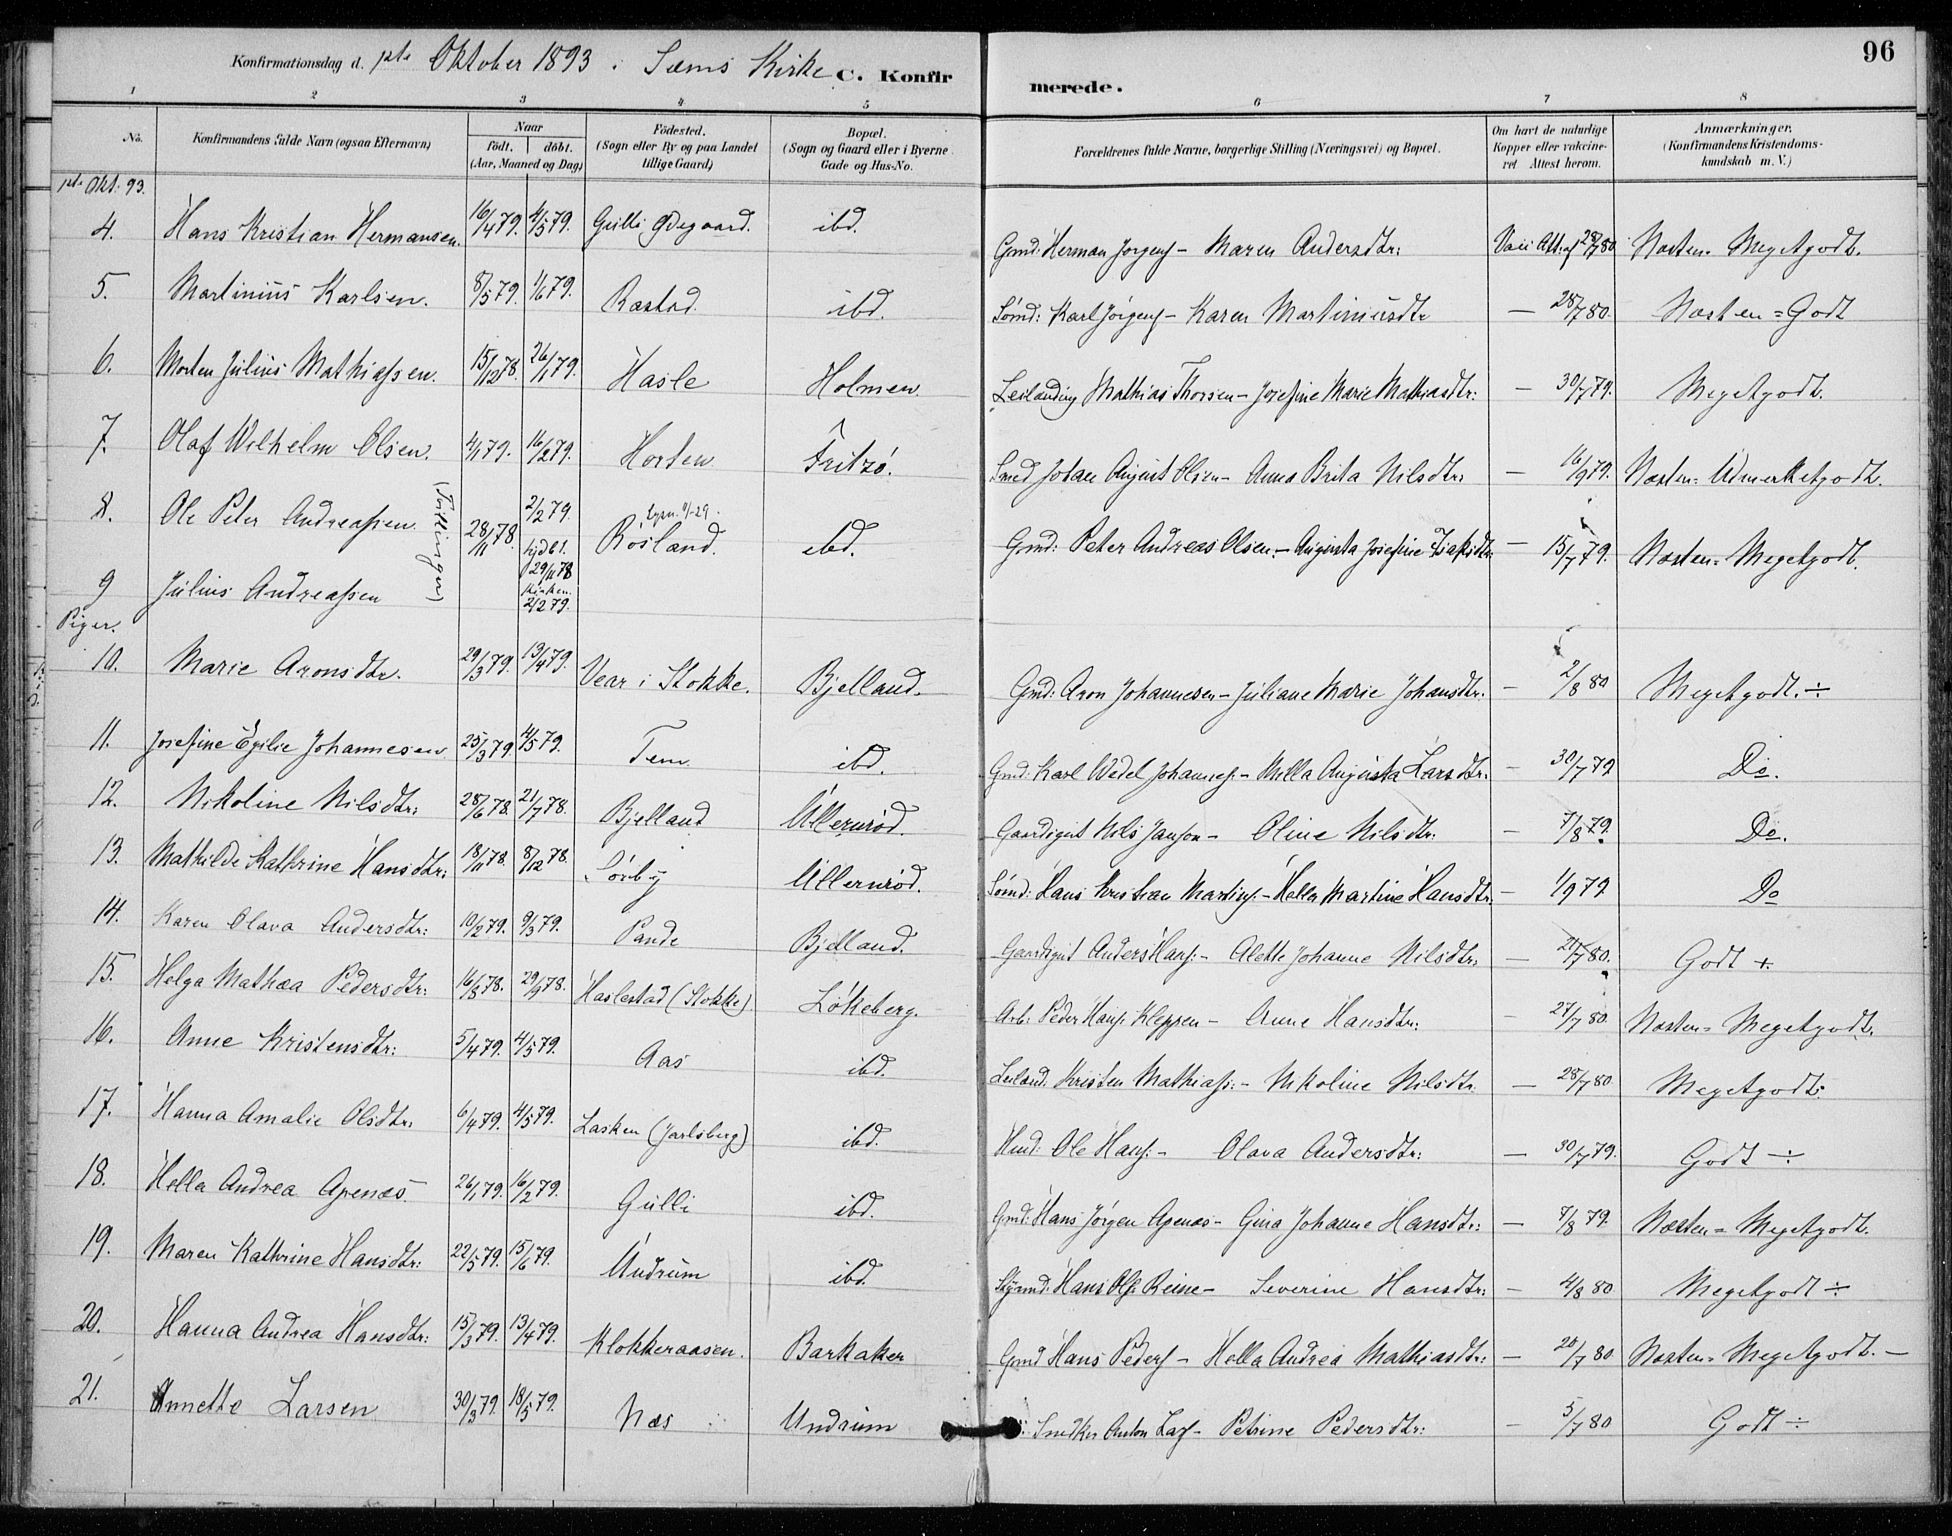 96
Konfirmationsdag d. 1ste Oktober 1893 i Sæms Kirke C. Konfir merede.
1 2 3 4 5 6 7 8
No. Konfirmandens fulde Navn (ogsaa Efternavn) Naar födt. döbt. (Aar, Maaned og Dag) Födested. (Sogn eller By og paa Landet tillige Gaard) Bopæl. (Sogn og Gaard eller i Byerne Gade og Hus-No. Forældrenes fulde Navne, borgerlige Stilling (Næringsvei) og Bopæl. Om havt de naturlige Kopper eller vakcineret Attest herom. Anmærkninger. (Konfirmandens Kristendomskundskab m. V.)
1ste Okt. 93.
4. Hans Kristian Hermansen. 16/4 79. 4/5 79. Gulli Ødegaard. ibd. Gmd: Herman Jørgens. - Maren Andersdtr: Vacc. Att. af 28/7 80. Næsten = Megetgodt.
5. Martinius Karlsen. 8/5 79. 1/6 79. Rastad. ibd. Sømd: Karl Jørgens. - Karen Martiniusdtr — 28/7 80. Næsten = Godt
6. Morten Julius Mathiassen. 15/12 78. 26/1 79. Hasle Holmen. Leilænding Mathias Thorsen - Josefine Marie Mathiasdtr: — 30/7 79. Megetgodt.
7. Olaf Wilhelm Olsen. 4/1 79. 16/2 79. Horten Fritzö. Smed Johan August Olsen - Anna Brita Nilsdtr: — 16/9 79. Næsten = Udmerketgodt.
8. Ole Peter Andreassen (Tvillinger) 28/11 78. 2/2 79. Rösland. ibd. Gmd: Peter Andreas Olsen. - Augusta Josefine Isaksdtr: — 15/7 79. Næsten = Megetgodt.
9 Julius Andreassen hjdbt. 29/11 78 Kirken. 2/2 79.
Piger.
10. Marie Aronsdtr. 29/3 79. 13/4 79. Vear i Stokke. Bjelland. Gmd: Aron Johannesen - Juliane Marie Johansdtr: — 2/8 80 Megetgodt. ÷
11. Josefine Egilie Johannesen 25/3 79 4/5 79. Tem ibd. Gmd: Karl Wedel Johannes: - Mella Augusta Larsdtr: — 30/7 79 Do.
12. Nikoline Nilsdtr: 28/6 78. 21/7 78. Bjelland Ullernröd. Gaardsgut Nils Jansen - Oline Nilsdtr. — 7/8 79. Do.
13. Mathilde Kathrine Hansdtr: 18/11 78. 8/12 78. Sörby Ullernröd. Sømd: Hans Kristian Martins. - Hella Martine Hansdtr. — 1/9 79 Do
14. Karen Olava Andersdtr: 10/2 79. 9/3 79. Pande Bjelland. Gaardsgut Anders Hans: - Alette Johanne Nilsdtr: — 21/7 80. Godt +.
15. Helga Mathea Pedersdtr: 16/8 78. 29/9 78. Haslestad (Stokke) Lökeberg. Arb: Peder Hans: Kleppen - Anne Hansdtr: — 27/7 80. Næsten = Megetgodt.
16. Anne Kristensdtr: 5/4 79. 4/5 79. Aas ibd. Leilænd: Kristen Mathias: - Nikoline Nilsdtr. — 28/7 80 Megetgodt:
17. Hanna Amalie Olsdtr: 6/4 79. 4/5 79. Lasken (Jarlsberg) ibd. Hmd: Ole Hans: - Olava Andersdtr: — 30/7 79. Godt ÷
18. Hella Andrea Apenæs. 26/1 79. 16/2 79. Gulli ibd. Gmd: Hans Jörgen Apenæs - Gina Johanne Hansdtr: — 7/8 79. Næsten = Megetgodt.
19. Maren Kathrine Hansdtr: 22/5 79. 15/6 79. Undrum ibd. Hans Ols: Reine - Severine Hansdtr: — 4/8 80 Megetgodt ÷
20. Hanna Andrea Hansdtr: 15/3 79. 13/4 79. Klokkeraasen. Barkaker Gmd Hans Peders - Hella Andrea Mathiasdtr: — 20/7 80 Næsten = Megetgodt. —
21. Annette Larsen 30/3 79. 18/5 79. Næs Undrum Snedker Anton Lars - Petrine Pedersdtr: — 5/7 80 Godt ÷